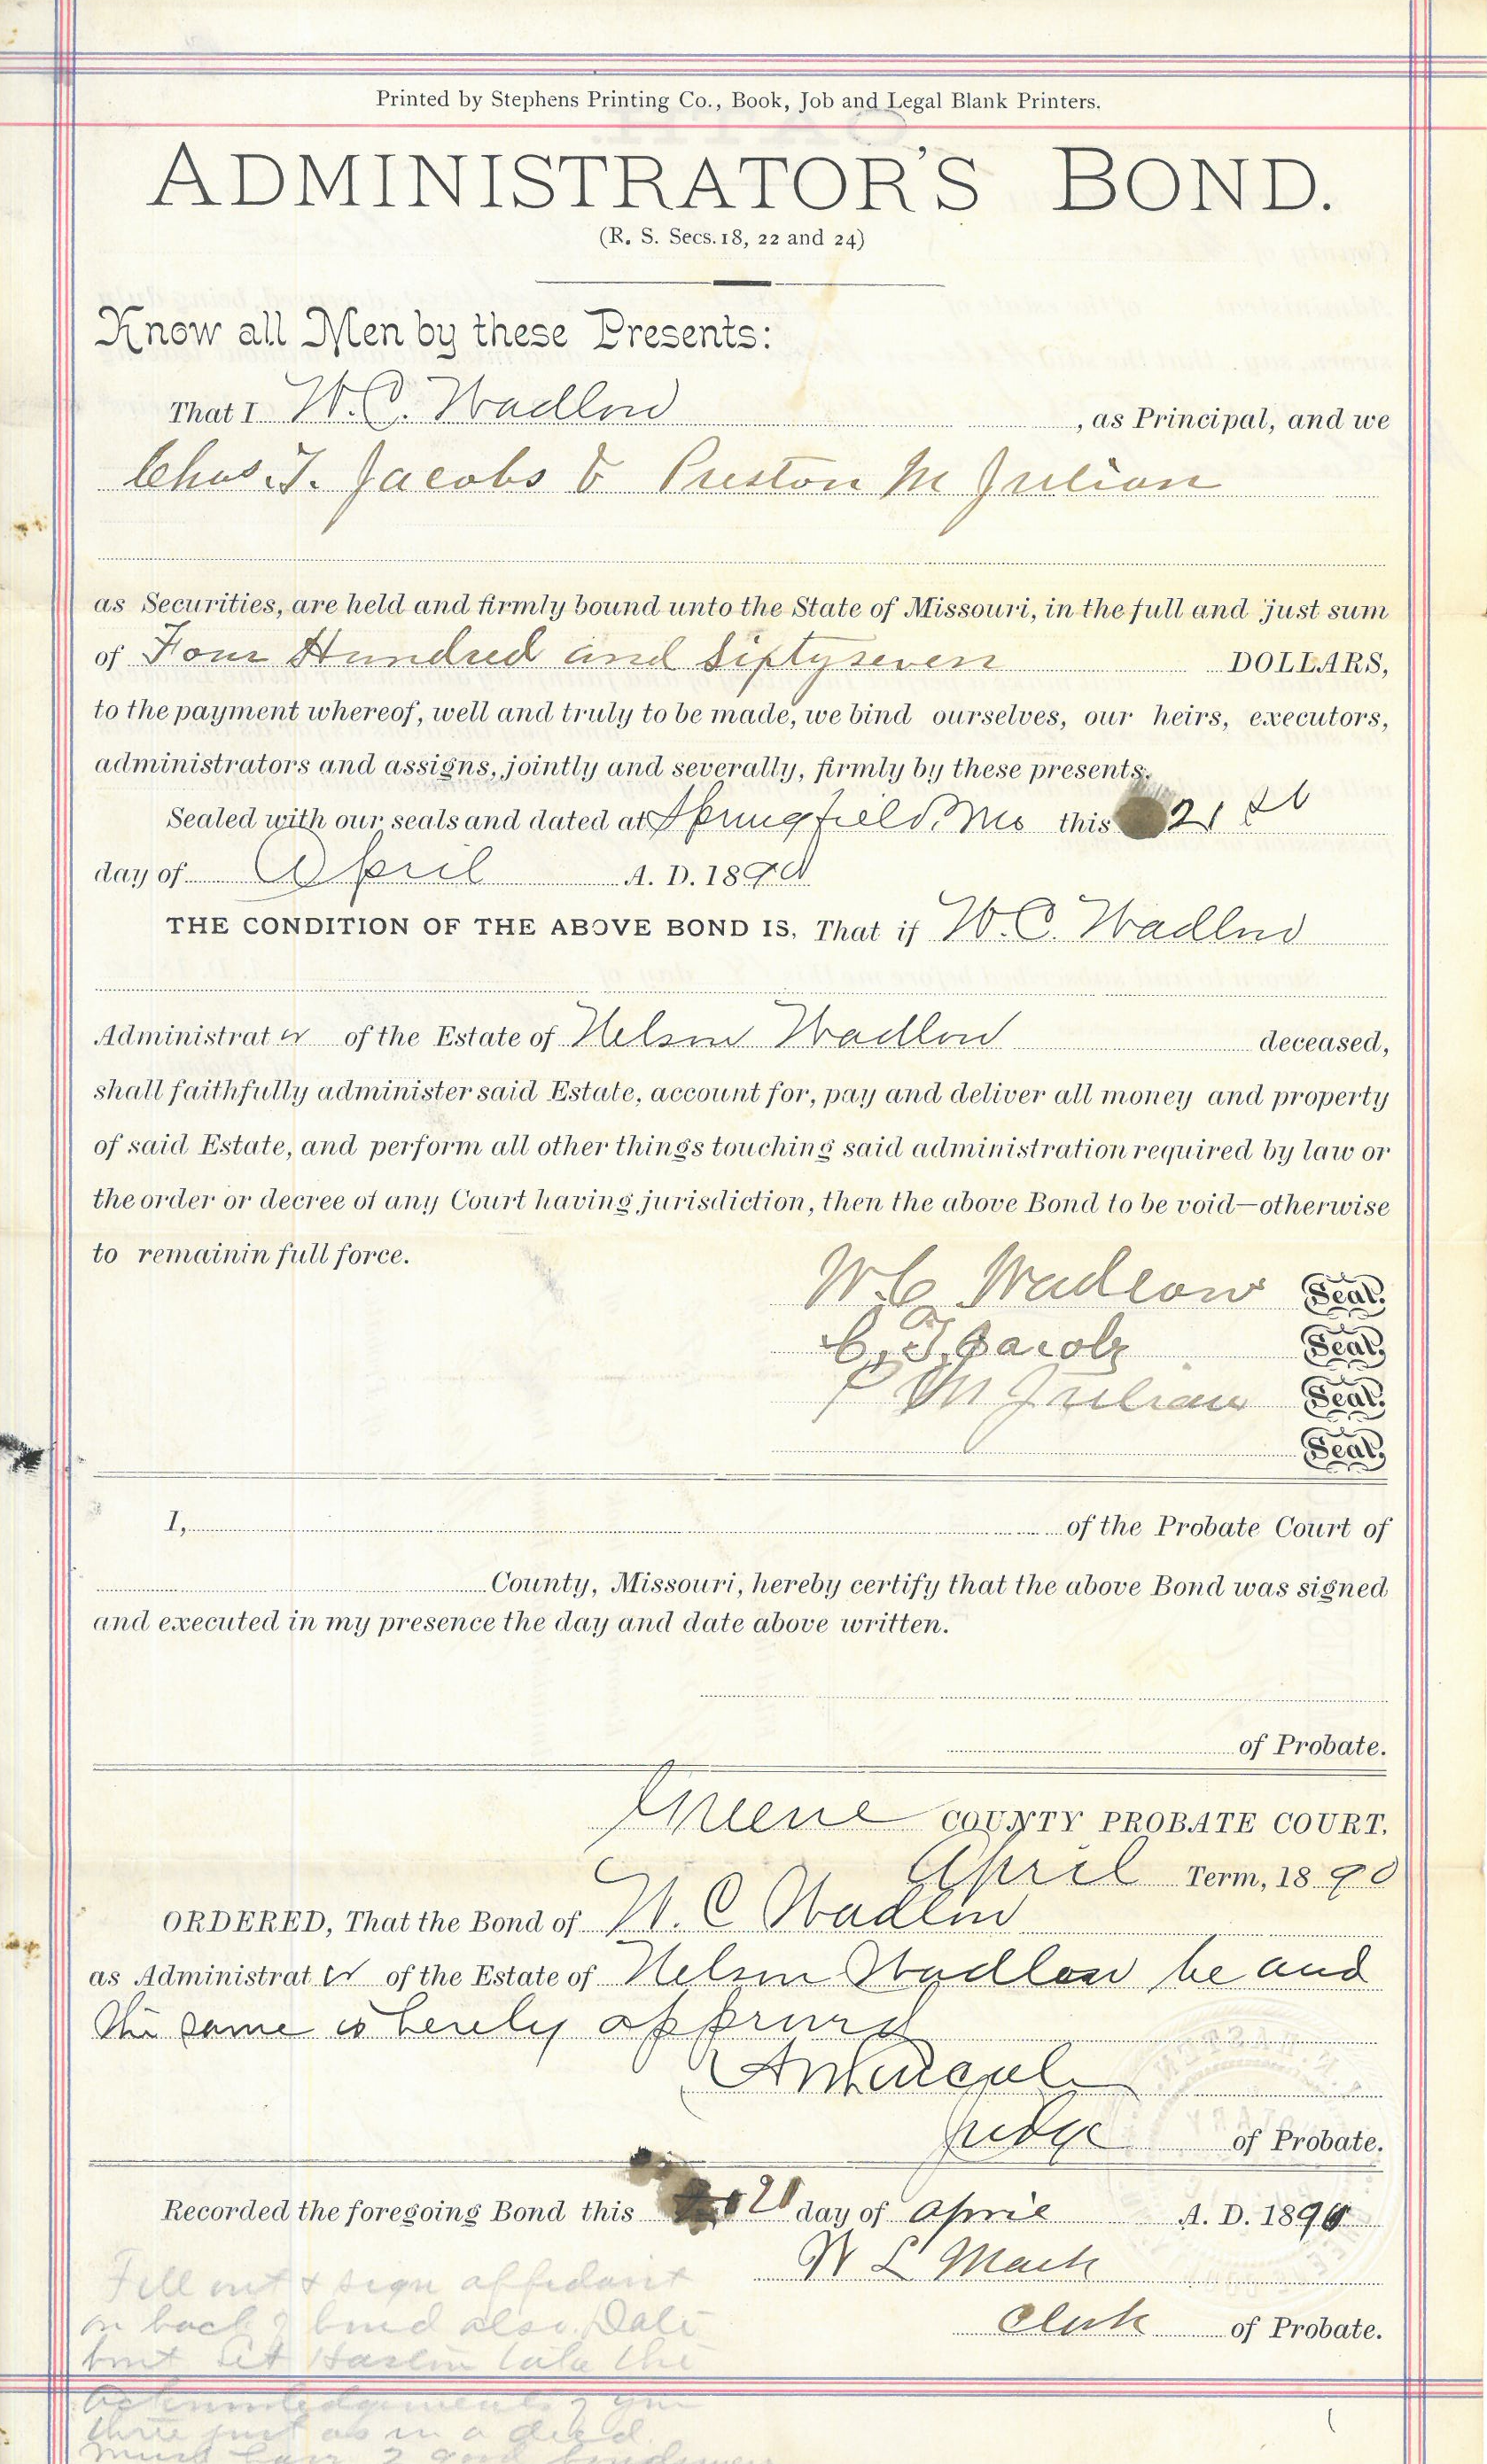 Printed by Stephens Printing Co., Book, Job and Legal Blank Printers.
ADMINISTRATOR'S BOND.
(R. S. Secs. 18, 22 and 24)
Know all Men by these Presents:
That I W. C. Wadlow , as Principal, and we
Chas. T. Jacobs & Preston M Julian
as Securities, are held and firmly bound unto the State of Missouri, in the full and just sum
of Four Hundred and Sixtyseven DOLLARS,
to the payment whereof, well and truly to be made, we bind ourselves, our heirs, executors,
administrators and assigns, jointly and severally, firmly by these presents.
Sealed with our seals and dated at Springfield, Mo this 21st
day of April A. D. 1890
THE CONDITION OF THE ABOVE BOND IS, That if W. C. Wadlow
Administrator of the Estate of Nelson Wadlow deceased,
shall faithfully administer said Estate, account for, pay and deliver all money and property
of said Estate, and perform all other things touching said administration required by law or
the order or decree of any Court having jurisdiction, then the above Bond to be void—otherwise
to remainin full force.
W. C Wadlow Seal.
C. T. Jacobs Seal.
P M Julian Seal.
Seal.
I, of the Probate Court of
County, Missouri, hereby certify that the above Bond was signed
and executed in my presence the day and date above written.
of Probate.
Greene COUNTY PROBATE COURT.
April Term, 1890
ORDERED, That the Bond of W. C Wadlow
as Administrator of the Estate of Nelson Wadlow be and
the same is hereby approved
Judge of Probate.
Recorded the foregoing Bond this 21 day of April A. D. 1890
W L Mack
Clerk of Probate.
Fill out & sign affidavit
on back of bond also. Date
but let Haslin take the
acknowledgements of you
three just as in a deed.
must have 2 good bondsmen